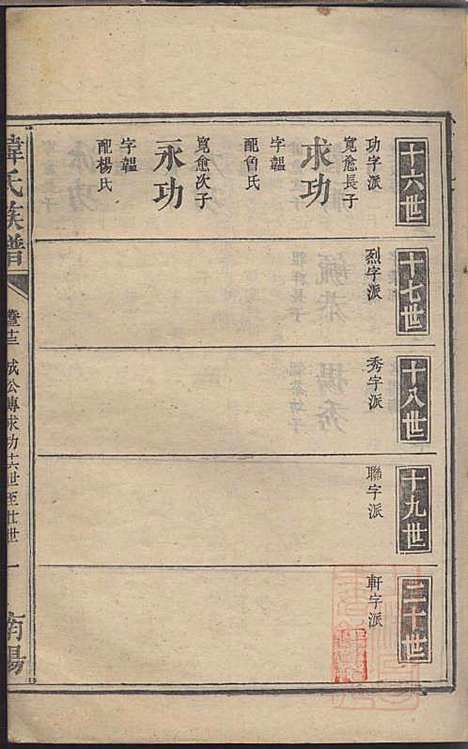 十六世
功字派
寬愈長子
求功
字韞
配魯氏
寬愈次子
永功
字韞
配楊氏
十七世
烈字派
十八世
秀字派
十九世
聯字派
二十世
軒字派
韓氏族譜
公傳求功十六世至廿世
一
南陽